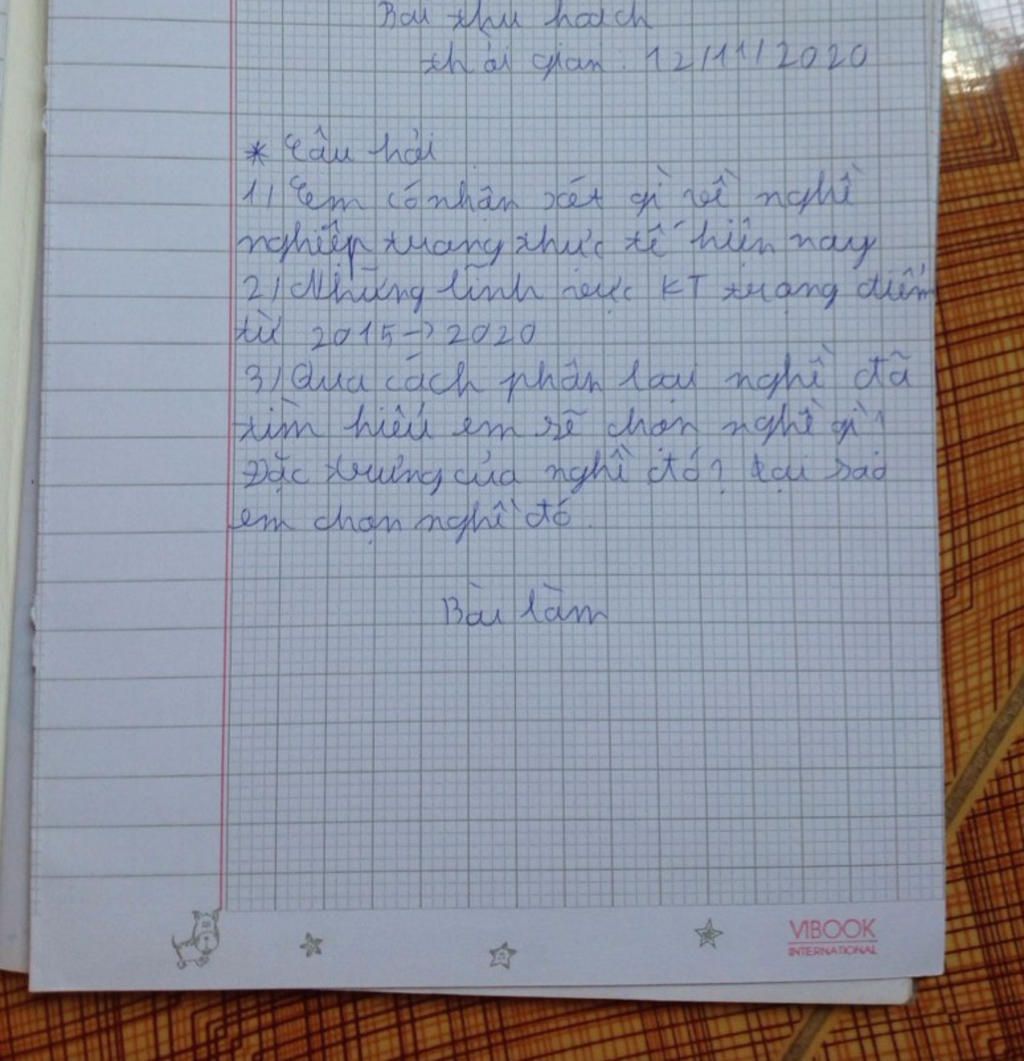 Bài thu hoạch
thời gian : 12/11/2020
* Câu hỏi
1) Em có nhận xét gì về nghề
nghiệp trong thực tế hiện nay
2) Những lĩnh vực KT trọng điểm
từ 2015 → 2020
3) Qua cách phân loại nghề đã
tìm hiểu em sẽ chọn nghề gì?
Đặc trưng của nghề đó? tại sao
em chọn nghề đó.
Bài làm
VIBOOK
INTERNATIONAL